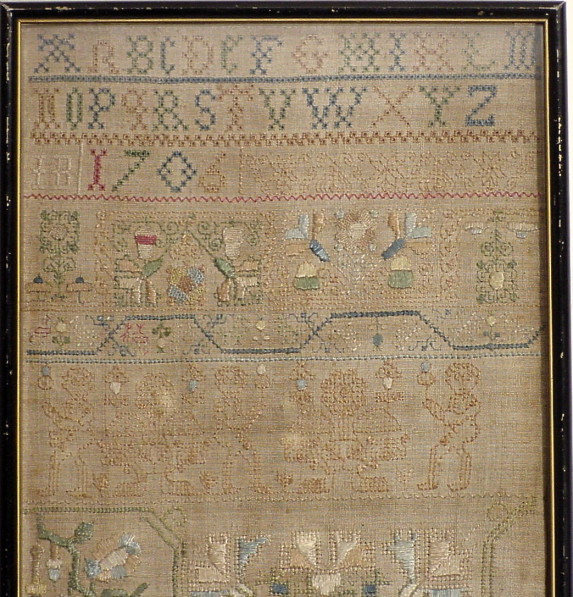 A B C D E F G H I K L M
N O P Q R S T V W X Y Z
1706